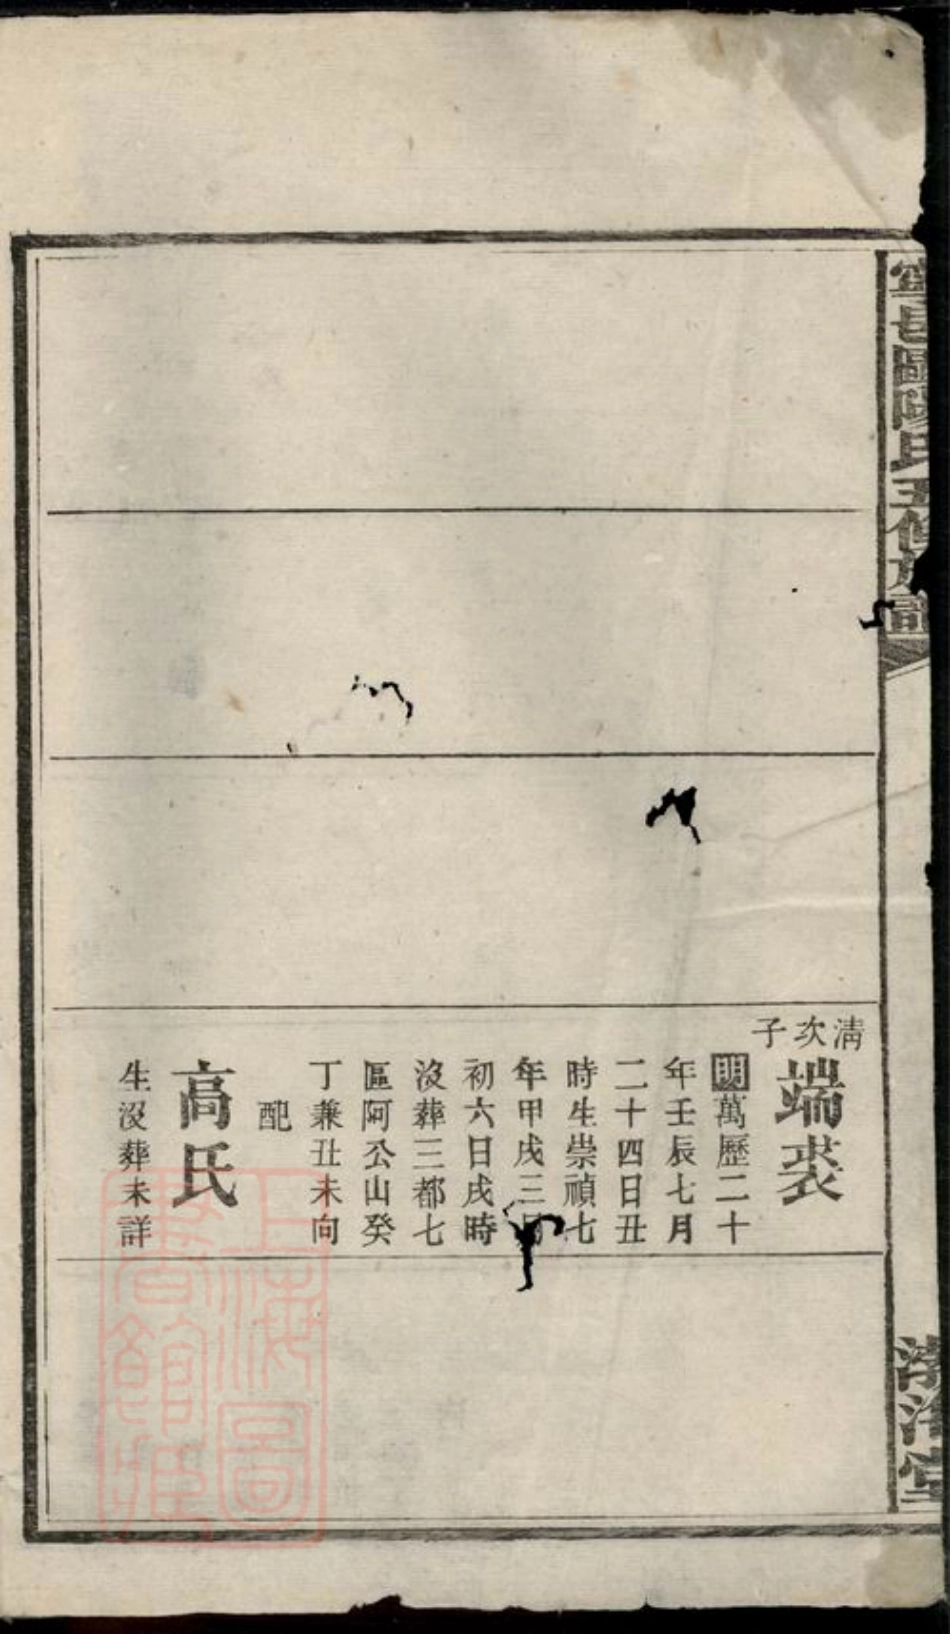 寧邑歐陽氏五修族譜
清次子
端裘
明萬歷二十
年壬辰七月
二十四日丑
時生崇禎七
年甲戌三月
初六日戌時
沒葬三都七
區阿公山癸
丁兼丑未向
配
高氏
生沒葬未詳
堂
上海圖
書館藏